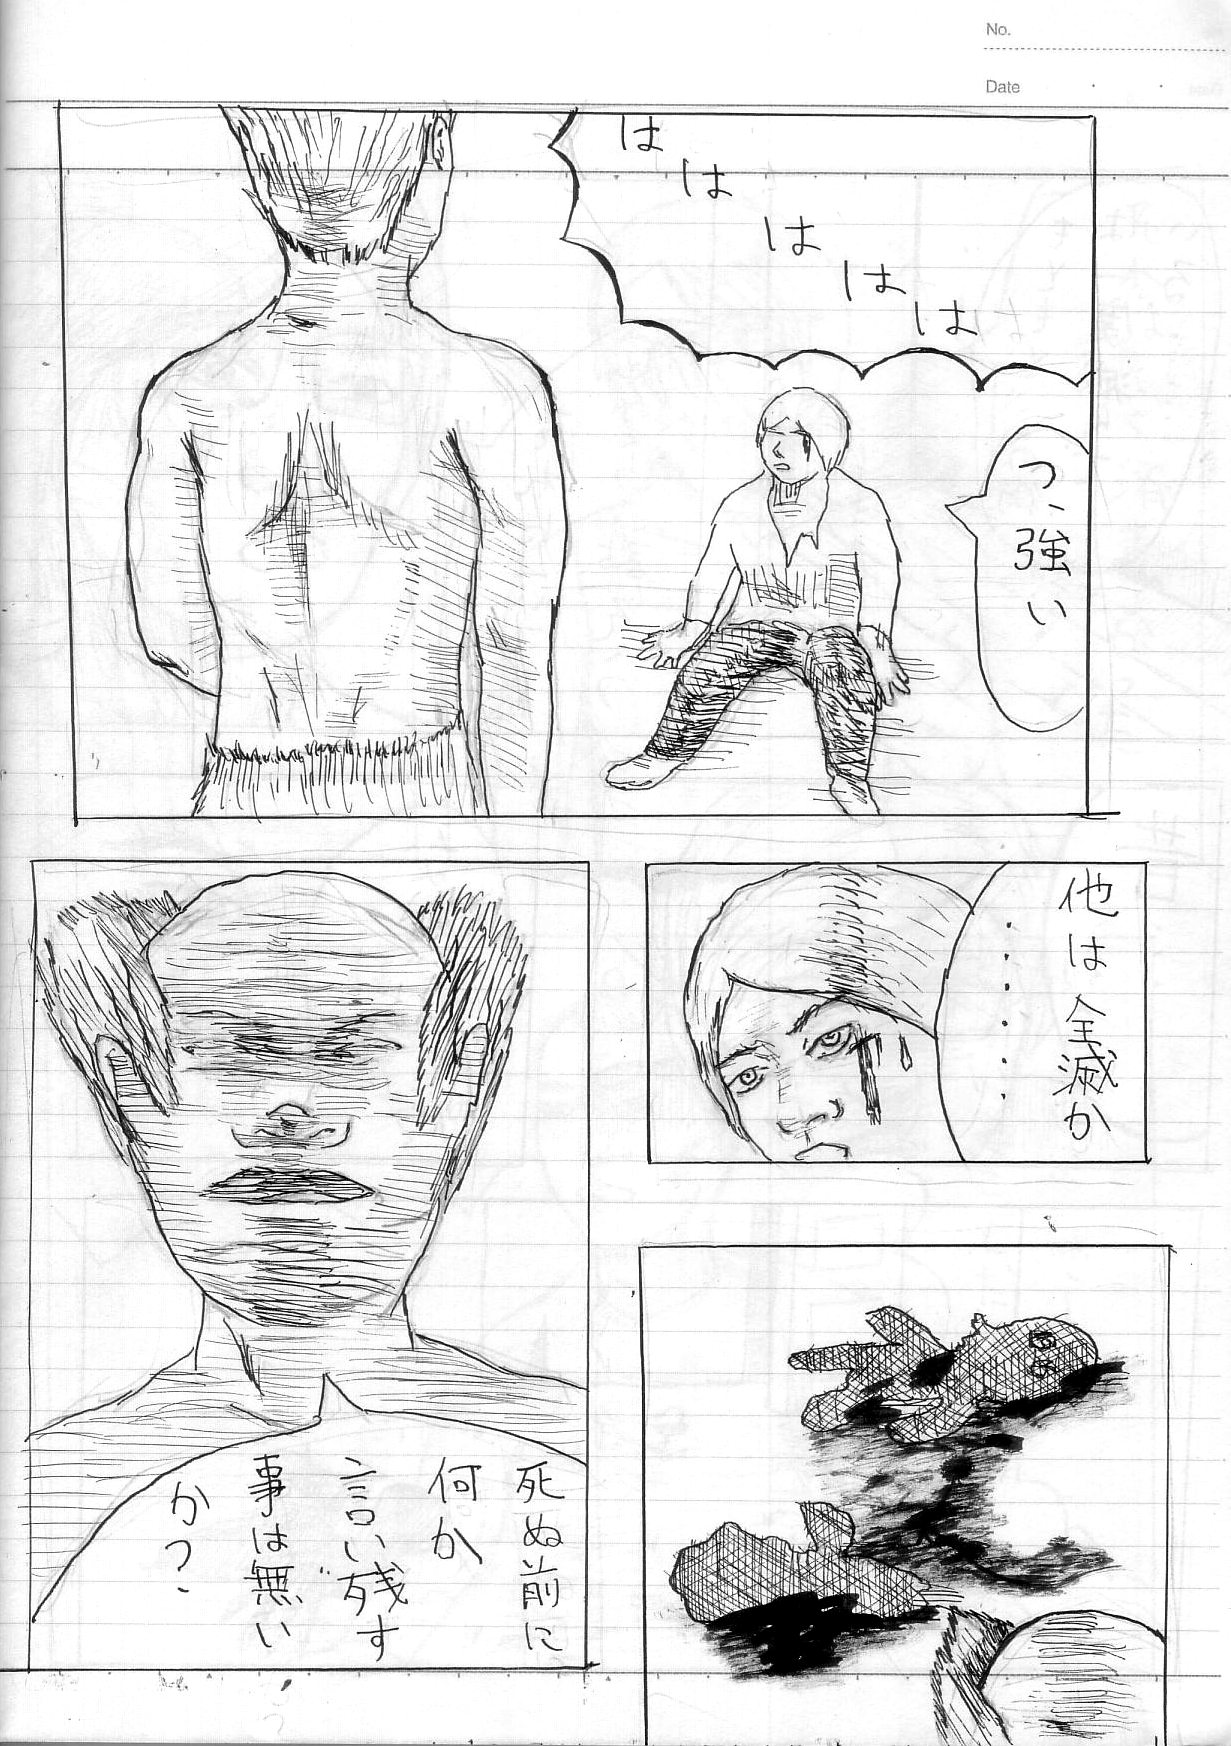 No.
Date
は
は
は
は
は
つ、強い
他は全滅か
・・・・・・
死ぬ前に
何か
言い残す
事は無い
か?